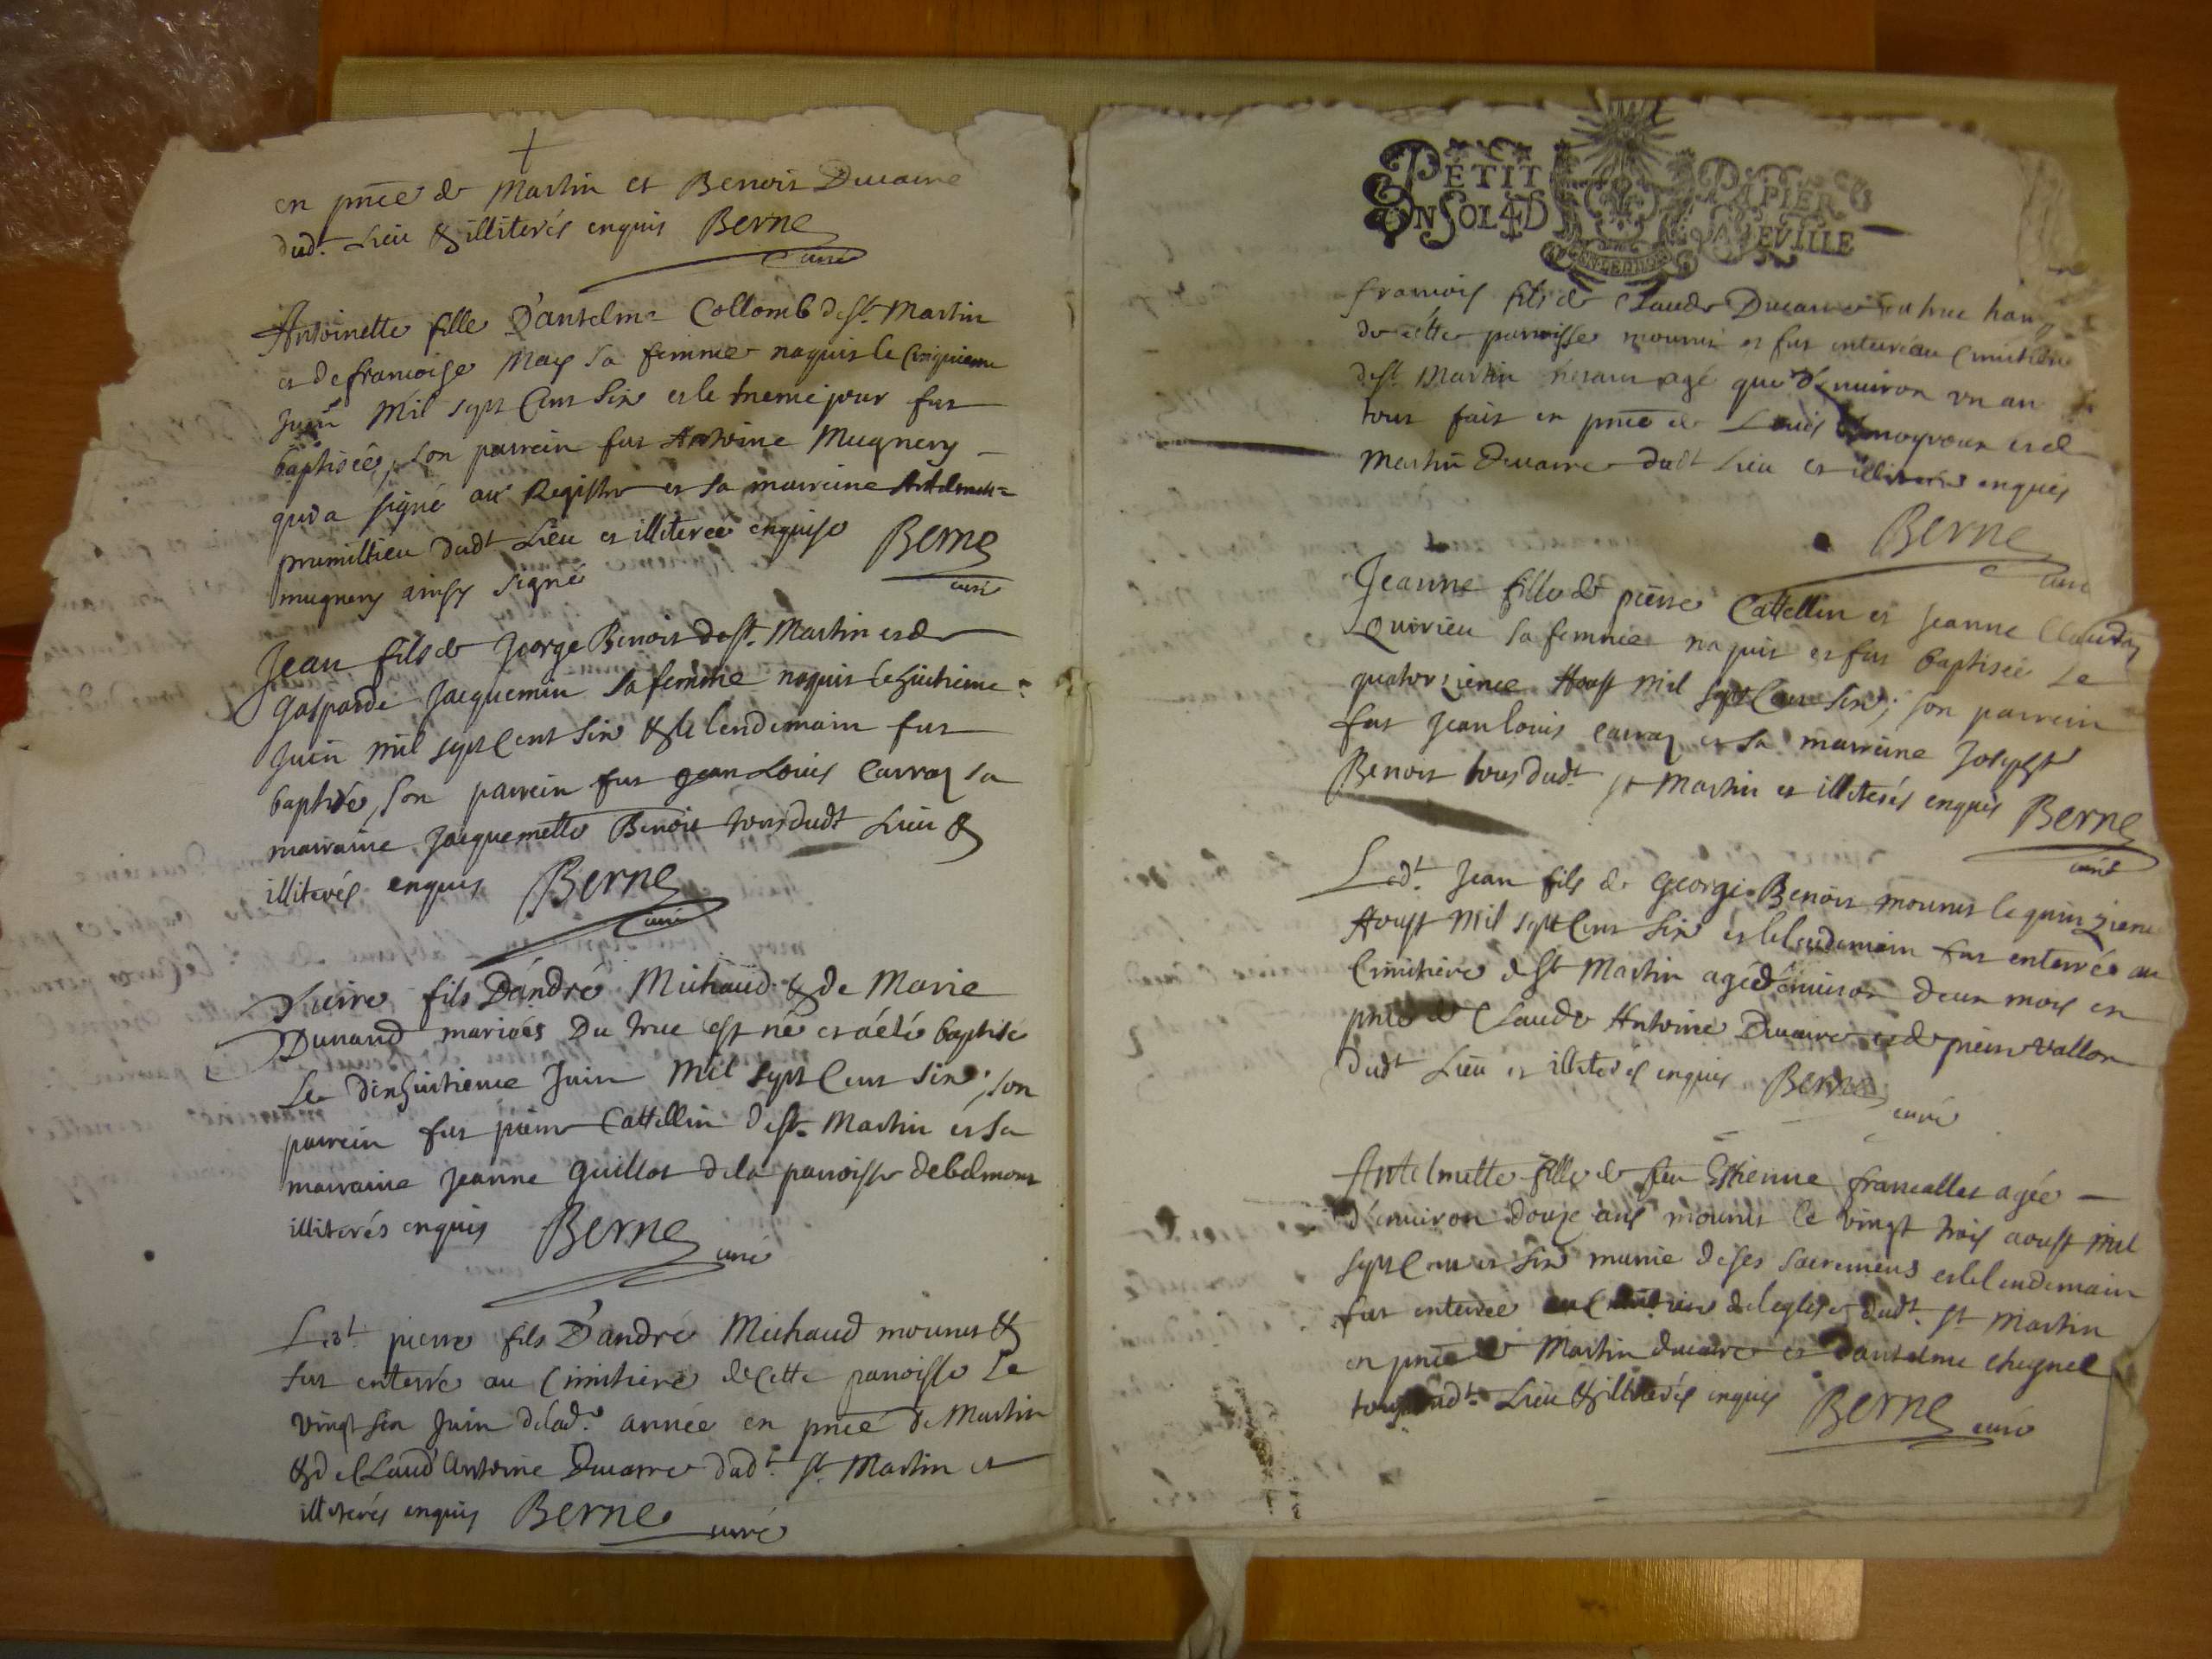 en pnce de Martin et Benoit Ducarre
dudt. Lieu & illiterés enquis Berne
curé
Antoinette fille D'antelme Collomb de st. Martin
et de francoise May sa femme naquit le Cinquieme
Juin mil sept Cent Six et le meme jour fut
baptisée, son parrein fut Antoine Mugnery
qui a signé au Registre et sa marreine Antelmette
prumillieu dudt Lieu et illiterée enquise Berne
mugnery ainsy signé curé
Jean fils de George Benoit de st. Martin et de
gasparde Jacquemin sa femme naquit le huitieme
Juin mil sept Cent Six & le lendemain fut
baptisé, son parrein fut Jean Louis Carraz sa
marraine Jacquemette Benoit tous dudt Lieu &
illiterés enquis Berne
curé
Pierre fils D'andré Michaud & de Marie
Dunand mariées Du truc est né et a été baptisé
Le dixhuitieme Juin Mil sept Cent Six; son
parrein fut pierre Cattellin de st. Martin et sa
marraine Jeanne guillot de la parroisse de belmont
illiterés enquis Berne curé
Ledt. pierre fils D'andré Michaud mourut &
fut enterré au Cimitiere de Cette parroisse Le
vingt six Juin de lade. année en pnce de Martin
& de Claud Antoine Ducarre dudt. st. Martin et
illiterés enquis Berne curé
PETIT PAPIER
UN SOL 4 D LA FEVILLE
francois fils de Claude Ducarre
de cette parroisse mourut et fut enterré au Cimitiere
de st. Martin n'etant agé que d'environ un an
tout fait en pnce de Louis et de
Martin Ducarre dudt Lieu et illiterés enquis
Berne
curé
Jeanne fille de pierre Cattellin et Jeanne Claudaz
Quirieu sa femme naquit et fut baptisée Le
quatorzieme Aoust Mil sept Cent Six; son parrein
fut Jean louis carraz et sa marreine Josepte
Benoit tous dudt. st Martin et illiterés enquis Berne
curé
Ledt. Jean fils de george Benoit mourut le quinzieme
Aoust Mil sept Cent Six et le lendemain fut enterré au
Cimitiere de st Martin agé d'environ deux mois en
pnce de Claude Antoine Ducarre et de pierre vallon
dudt Lieu et illiterés enquis Berne
curé
Antelmette fille de feu Estienne francallet agée
d'environ douze ans mourut le vingt trois aoust mil
sept Cent et Six munie de ses sacremens et le lendemain
fut enterrée au Cimitiere de l'eglise dudt. st Martin
en pnce de Martin ducarre et d'antelme chugnet
tous dudt. Lieu & illiterés enquis Berne curé